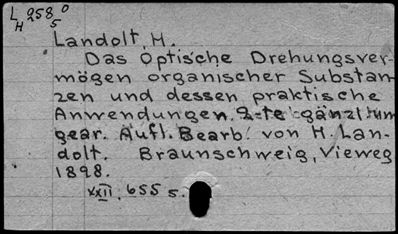 L 258 0
H 5
Landolt, H.
Das Optische Drehungsver-
mögen organischer Substan-
zen und dessen praktische
Anwendungen. 2-te gänzl. um
gear. Aufl. Bearb. von H. Lan-
dolt. Braunschweig, Vieweg
1898.
XXII, 655 s.